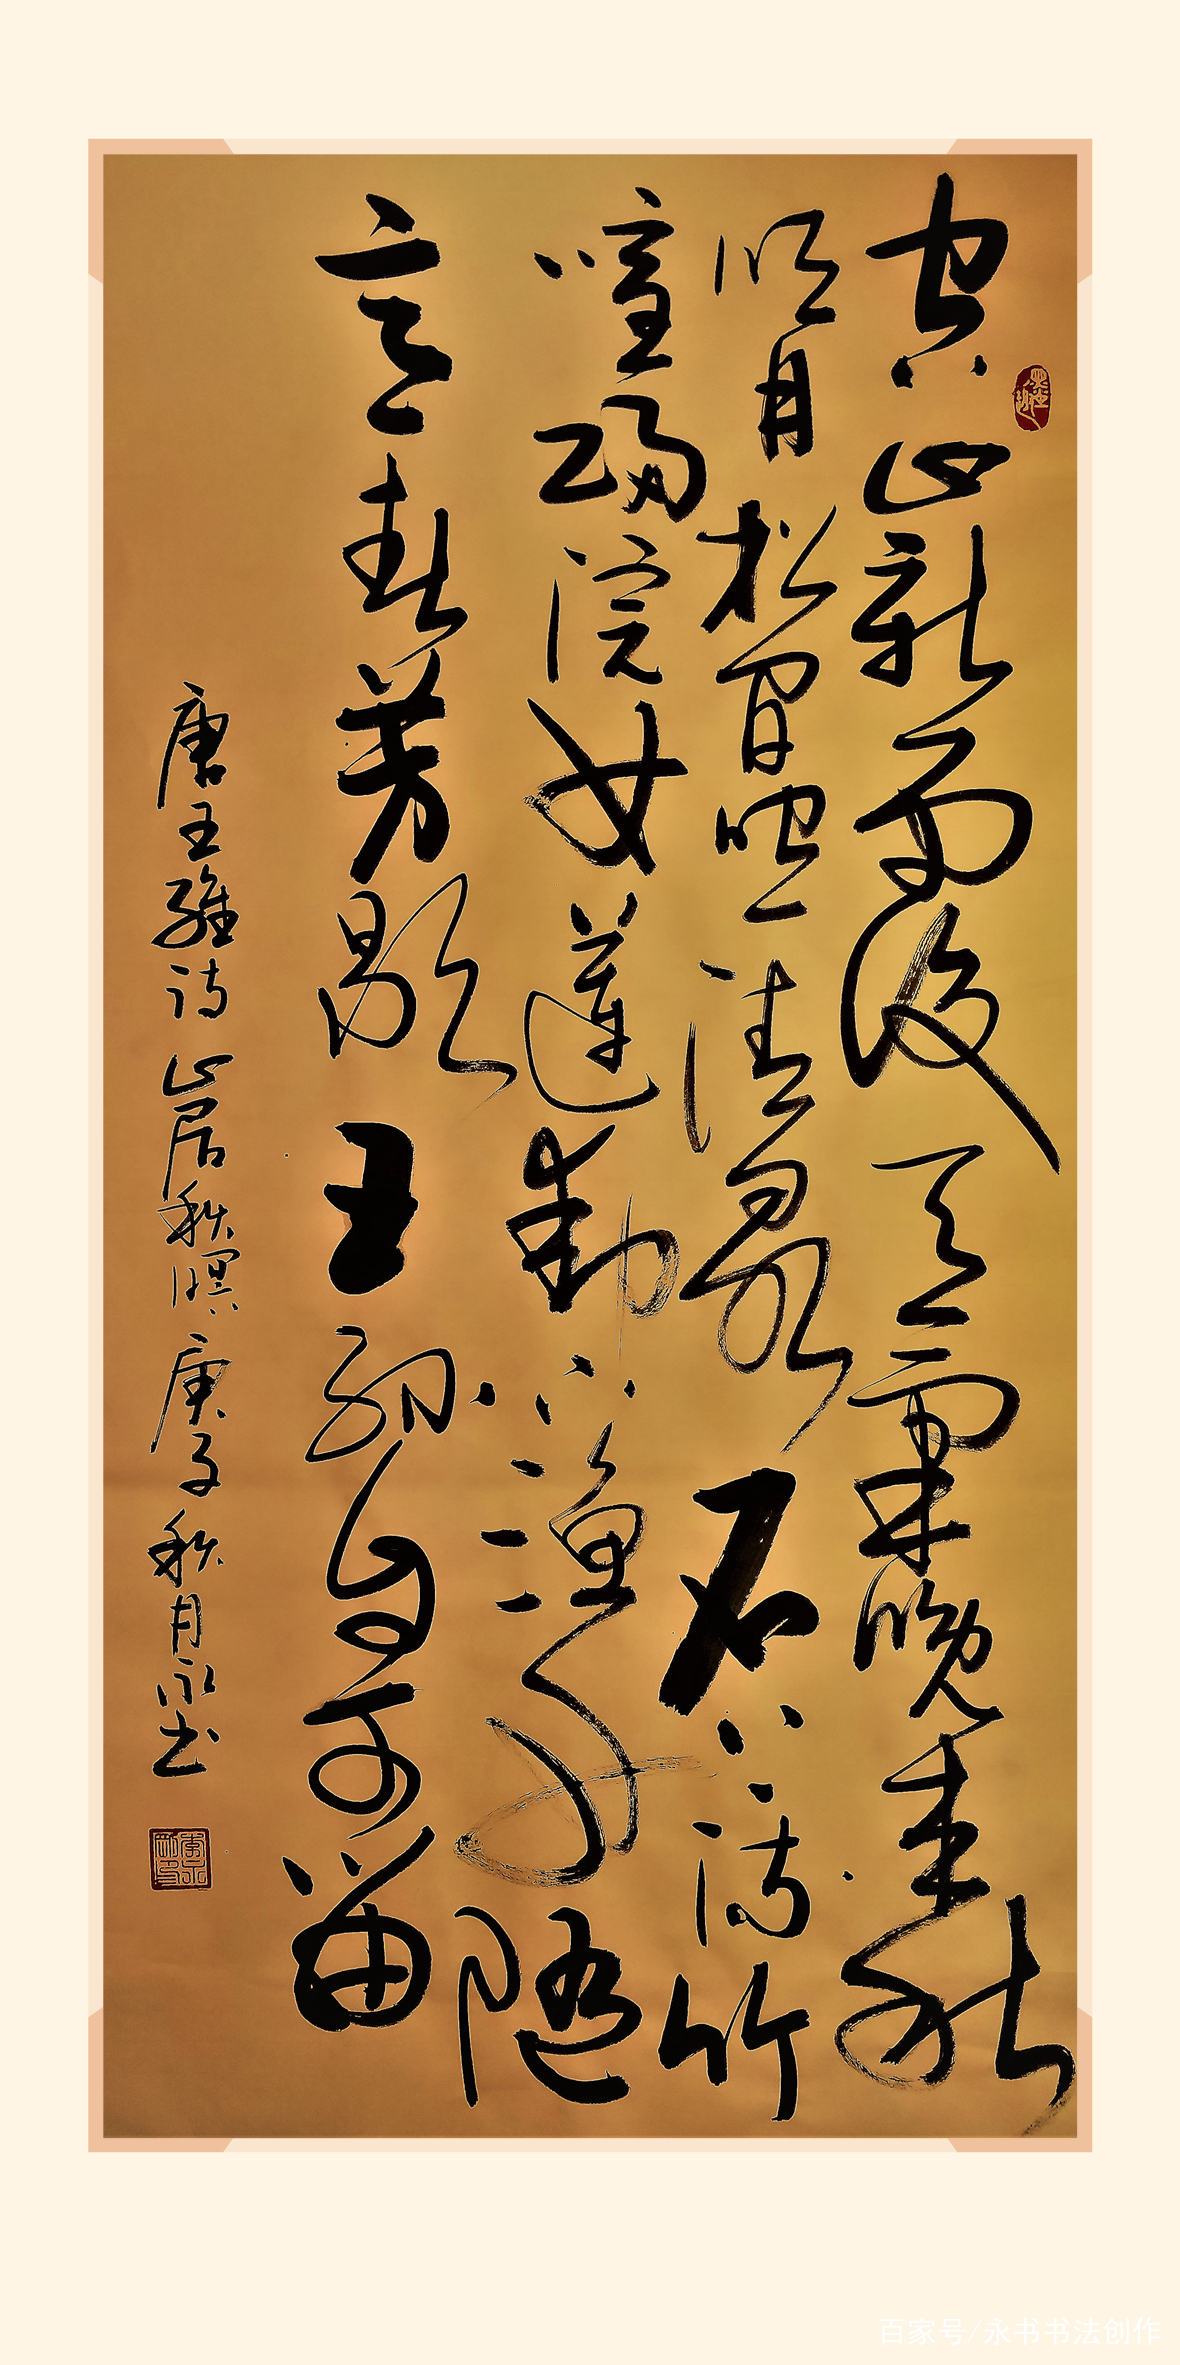 空山新雨後天氣晚来秋
明月松间照清泉石上流竹
喧歸浣女蓮動下漁舟随
意春芳歇王孫自可留
唐王維诗山居秋暝庚子秋月永书
百家号/永书书法创作